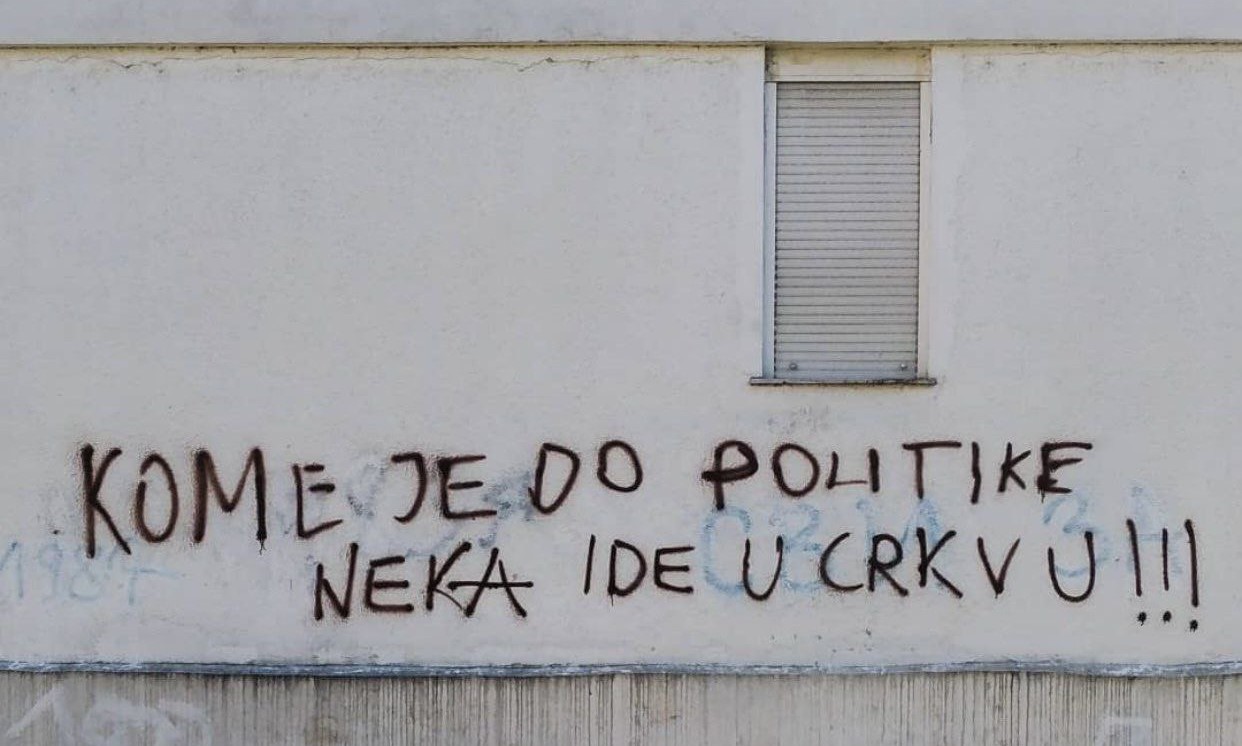 KOME JE DO POLITIKE
NEKA IDE U CRKVU!!!